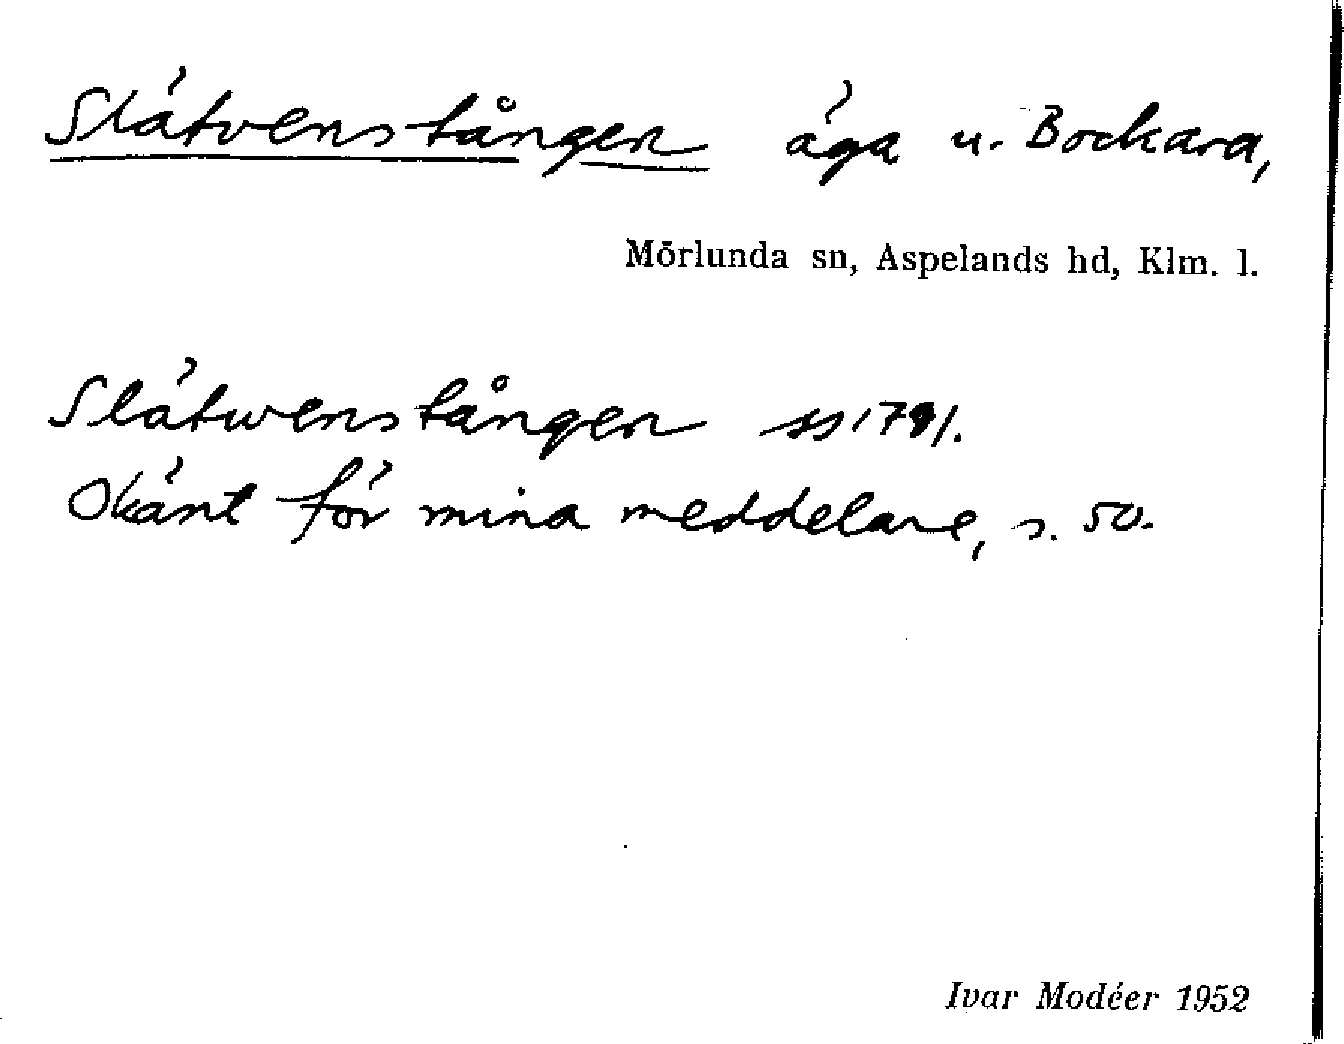 Slätvenstången äga u. Bockara,
Mörlunda sn, Aspelands hd, Klm. l.
Slätwenstången SS 1791.
Okänt för mina meddelare, s. 50.
Ivar Modéer 1952